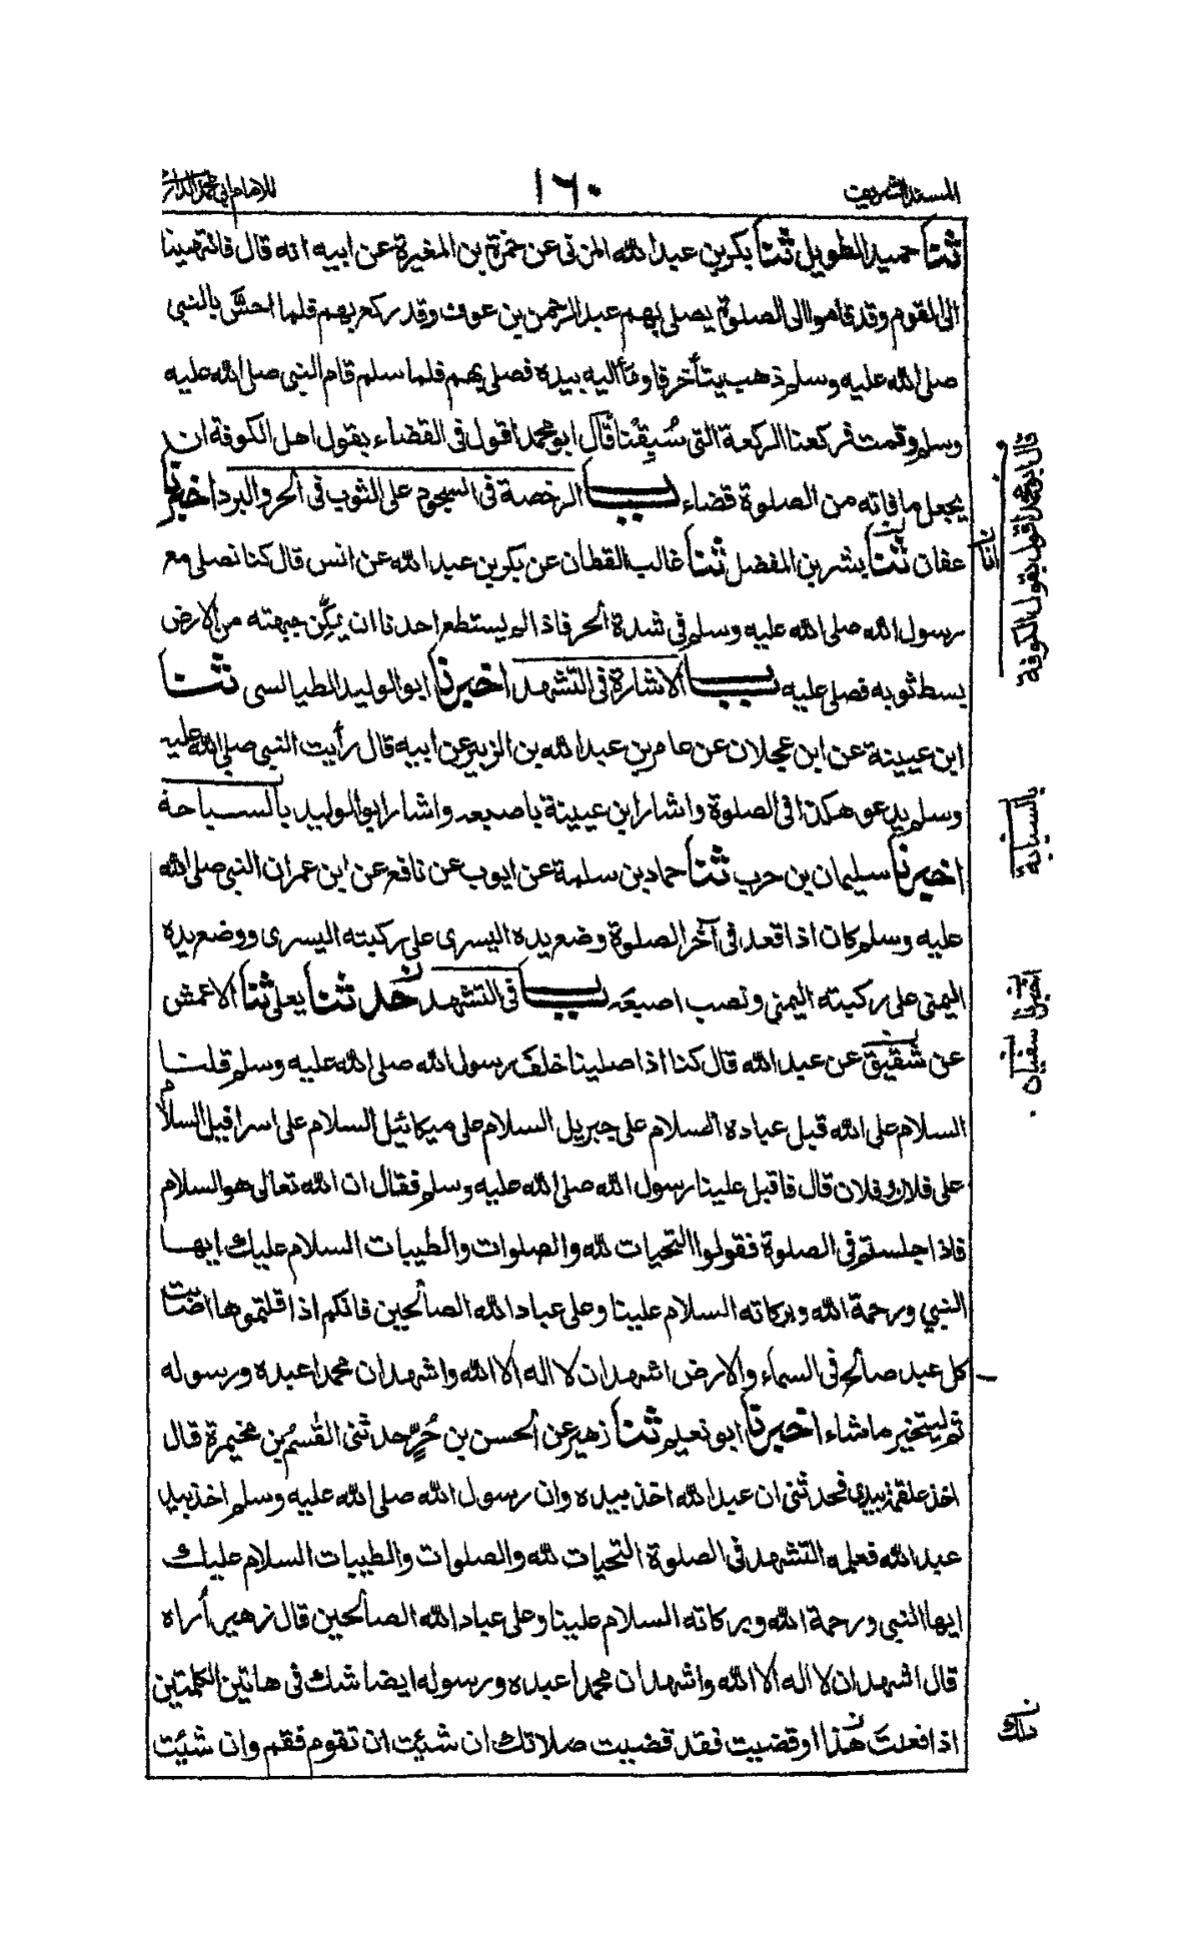 المسند الشريف
١٦٠
للامام ابي محمد الدارمي
ثنا حميد الطويل ثنا بكر بن عبد الله المزنى عن حمزة بن المغيرة عن ابيه انه قال فانتهينا
الى القوم وقد قاموا الى الصلوة يصلى بهم عبد الرحمن بن عوف وقد ركع بهم فلما احسَّ بالنبى
صلى الله عليه وسلم ذهب يتأخر فاومأ اليه بيده فصلى بهم فلما سلم قام النبى صلى الله عليه
وسلم وقمت فركعنا الركعة التى سُبِقْنا قال ابو محمد اقول فى القضاء بقول اهل الكوفة ان
يجعل ما فاته من الصلوة قضاء باب الرخصة فى السجود على الثوب فى الحر والبرد اخبرنا
عفان ثنا بشر بن المفضل ثنا غالب القطان عن بكر بن عبد الله عن انس قال كنا نصلى مع
رسول الله صلى الله عليه وسلم فى شدة الحر فاذا لم يستطع احدنا ان يمكِّن جبهته من الارض
بسط ثوبه فصلى عليه باب الاشارة فى التشهد اخبرنا ابو الوليد الطيالسى ثنا
ابن عيينة عن ابن عجلان عن عامر بن عبد الله بن الزبير عن ابيه قال رأيت النبى صلى الله عليه
وسلم يدعو هكذا فى الصلوة واشار ابن عيينة باصبعه واشار ابو الوليد بالسباحة
اخبرنا سليمان بن حرب ثنا حماد بن سلمة عن ايوب عن نافع عن ابن عمر ان النبى صلى الله
عليه وسلم كان اذا قعد فى آخر الصلوة وضع يده اليسرى على ركبته اليسرى ووضع يده
اليمنى على ركبته اليمنى ونصب اصبعه باب فى التشهد حد ثنا يعلى ثنا الاعمش
عن شقيق عن عبد الله قال كنا اذا صلينا خلف رسول الله صلى الله عليه وسلم قلنا
السلام على الله قبل عباده السلام على جبريل السلام على ميكائيل السلام على اسرافيل السلام
على فلان وفلان قال فاقبل علينا رسول الله صلى الله عليه وسلم فقال ان الله تعالى هو السلام
فاذا جلستم فى الصلوة فقولوا التحيات لله والصلوات والطيبات السلام عليك ايها
النبي ورحمة الله وبركاته السلام علينا وعلى عباد الله الصالحين فانكم اذا قلتموها اصابت
كل عبد صالح فى السماء والارض اشهد ان لا اله الا الله واشهد ان محمدا عبده ورسوله
ثم ليتخير ما شاء اخبرنا ابو نعيم ثنا زهير عن الحسن بن حُرٍّ حدثنى القٰسم بن مخيمرة قال
اخذ علقمة بيدى فحدثنى ان عبد الله اخذ بيده وان رسول الله صلى الله عليه وسلم اخذ بيد
عبد الله فعلمه التشهد فى الصلوة التحيات لله والصلوات والطيبات السلام عليك
ايها النبي ورحمة الله وبركاته السلام علينا وعلى عباد الله الصالحين قال زهير أُراه
قال اشهد ان لا اله الا الله واشهد ان محمدا عبده ورسوله ايضا شك فى هاتين الكلمتين
اذا فعلت هذا او قضيت فقد قضيت صلاتك ان شئت ان تقوم فقم وان شئت
قال ابو محمد اقول بقول الكوفة
انا
بالسبابة
اخبرنا سفيان
ذلك